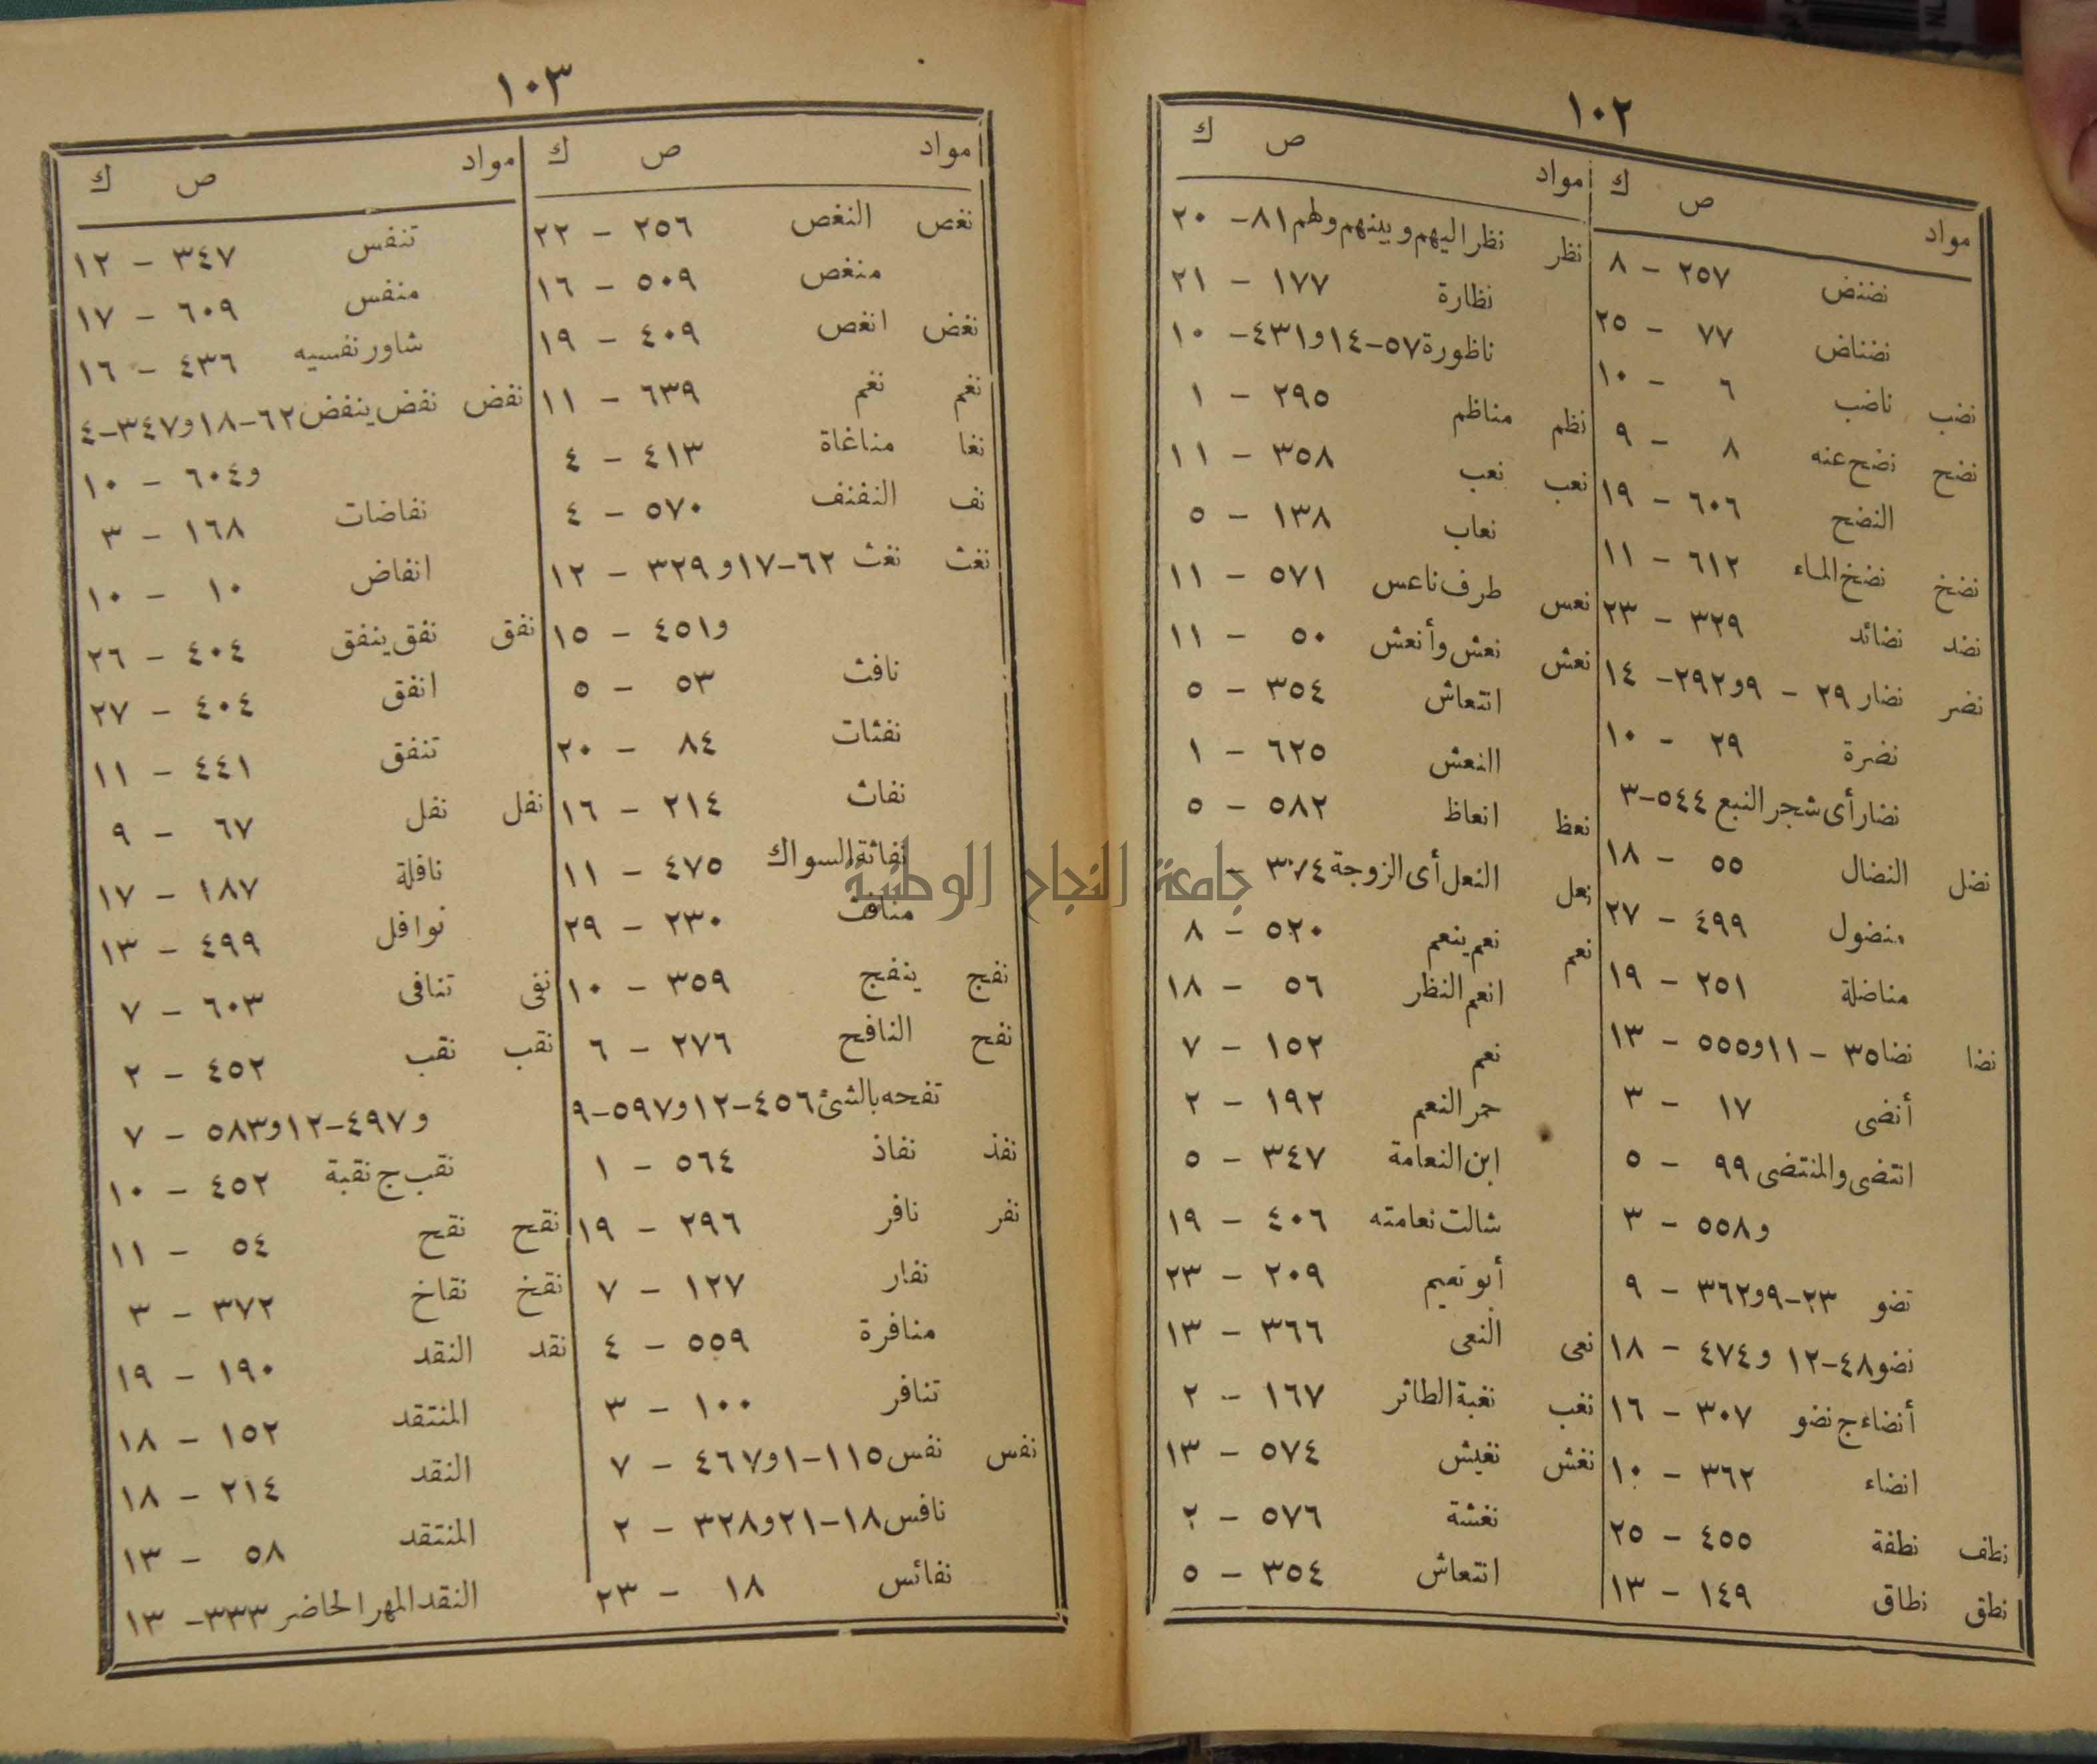 ١٠٢
مواد ص ك
نضنض ٢٥٧ - ٨
نضناض ٧٧ - ٢٥
نضب ناضب ٦ - ١٠
نضح نضح عنه ٨ - ٩
النضح ٦٠٦ - ١٩
نضخ نضخ الماء ٦١٢ - ١١
نضد نضائد ٣٢٩ - ٢٣
نضر نضار ٢٩ - ٩و٢٩٢ - ١٤
نضرة ٢٩ - ١٠
نضار أى شجر النبع ٥٤٤-٣
نضل النضال ٥٥ - ١٨
منضول ٤٩٩ - ٢٧
مناضلة ٢٥١ - ١٩
نضا نضا ٣٥ - ١١و٥٥٥ - ١٣
أنضى ١٧ - ٣
انتضى والمنتضى ٩٩ - ٥
و٥٥٨ - ٣
نضو ٢٣-٩و٣٦٢ - ٩
نضو ٤٨-١٢ و٤٧٤ - ١٨
أنضاء ج نضو ٣٠٧ - ١٦
انضاء ٣٦٢ - ١٠
نطف نطفة ٤٥٥ - ٢٥
نطق نطاق ١٤٩ - ١٣
مواد ص ك
نظر نظر اليهم وبينهم ولهم ٨١ - ٢٠
نظارة ١٧٧ - ٢١
ناظورة ٥٧-١٤و٤٣١ - ١٠
نظم مناظم ٢٩٥ - ١
نعب نعب ٣٥٨ - ١١
نعاب ١٣٨ - ٥
نعس طرف ناعس ٥٧١ - ١١
نعش نعش وأنعش ٥٠ - ١١
انتعاش ٣٥٤ - ٥
النعش ٦٢٥ - ١
نعظ انعاظ ٥٨٢ - ٥
نعل النعل أى الزوجة
نعم نعم ينعم ٥٢٠ - ٨
انعم النظر ٥٦ - ١٨
نعم ١٥٢ - ٧
حمر النعم ١٩٢ - ٢
ابن النعامة ٣٤٧ - ٥
شالت نعامته ٤٠٦ - ١٩
أبو نعيم ٢٠٩ - ٢٣
نعى النعى ٣٦٦ - ١٣
نغب نغبة الطائر ١٦٧ - ٢
نغش نغيش ٥٧٤ - ١٣
نغشة ٥٧٦ - ٢
انتعاش ٣٥٤ - ٥
١٠٣
مواد ص ك
نغص النغص ٢٥٦ - ٢٢
منغص ٥٠٩ - ١٦
نغض انغص ٤٠٩ - ١٩
نغم نغم ٦٣٩ - ١١
نغا مناغاة ٤١٣ - ٤
نف النفنف ٥٧٠ - ٤
نفث نفث ٦٢-١٧و ٣٢٩ - ١٢
و٤٥١ - ١٥
نافث ٥٣ - ٥
نفثات ٨٤ - ٢٠
نفاث ٢١٤ - ١٦
نفاثة السواك ٤٧٥ - ١١
منافث ٢٣٠ - ٢٩
نفج ينفج ٣٥٩ - ١٠
نفح النافح ٢٧٦ - ٦
نفحه بالشئ ٤٥٦-١٢و٥٩٧-٩
نفذ نفاذ ٥٦٤ - ١
نفر نافر ٢٩٦ - ١٩
نفار ١٢٧ - ٧
منافرة ٥٥٩ - ٤
تنافر ١٠٠ - ٣
نفس نفس ١١٥-١و٤٦٧ - ٧
نافس ١٨-٢١و٣٢٨ - ٢
نفائس ١٨ - ٢٣
مواد ص ك
تنفس ٣٤٧ - ١٢
منفس ٦٠٩ - ١٧
شاور نفسيه ٤٣٦ - ١٦
نفض نفض ينفض ٦٢-١٨و٣٤٧-٤
و٦٠٤ - ١٠
نفاضات ١٦٨ - ٣
انفاض ١٠ - ١٠
نفق نفق ينفق ٤٠٤ - ٢٦
انفق ٤٠٤ - ٢٧
تنفق ٤٤١ - ١١
نفل نفل ٦٧ - ٩
نافلة ١٨٧ - ١٧
نوافل ٤٩٩ - ١٣
نفى تنافى ٦٠٣ - ٧
نقب نقب ٤٥٢ - ٢
و٤٩٧-١٢و٥٨٣ - ٧
نقب ج نقبة ٤٥٢ - ١٠
نقح نقح ٥٤ - ١١
نقخ نقاخ ٣٧٢ - ٣
نقد النقد ١٩٠ - ١٩
المنتقد ١٥٢ - ١٨
النقد ٢١٤ - ١٨
المنتقد ٥٨ - ١٣
النقد المهر الحاضر ٣٣٣ - ١٣
جامعة النجاح الوطنية